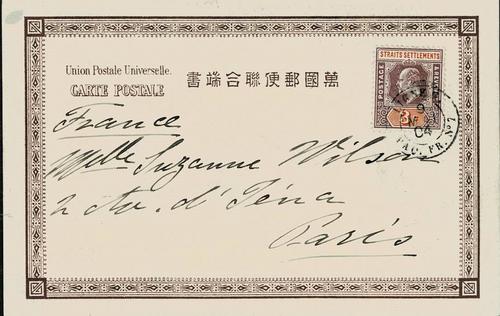 Union Postale Universelle.
CARTE POSTALE
書端合聯便郵國萬
STRAITS SETTLEMENTS
POSTAGE
REVENUE
9
04
PAQ. FR. Nº 1
France
Mlle Suzanne Wilson
2 Av. d'Iéna
Paris